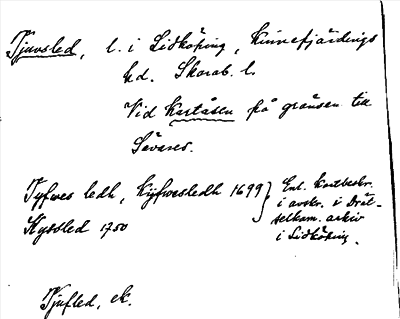 Tjuvsled, l. i Lidköping, Kinnefjärdings
hd. Skarab. l.
Vid Kartåsen på gränsen till
Sävares.
Tyfwes ledh, Kyfwesledh 1699
Kyssled 1750
Enl. kartbeskr.
i avskr. i Drät-
selkam. arkiv
i Lidköping.
Tjufled, ek.